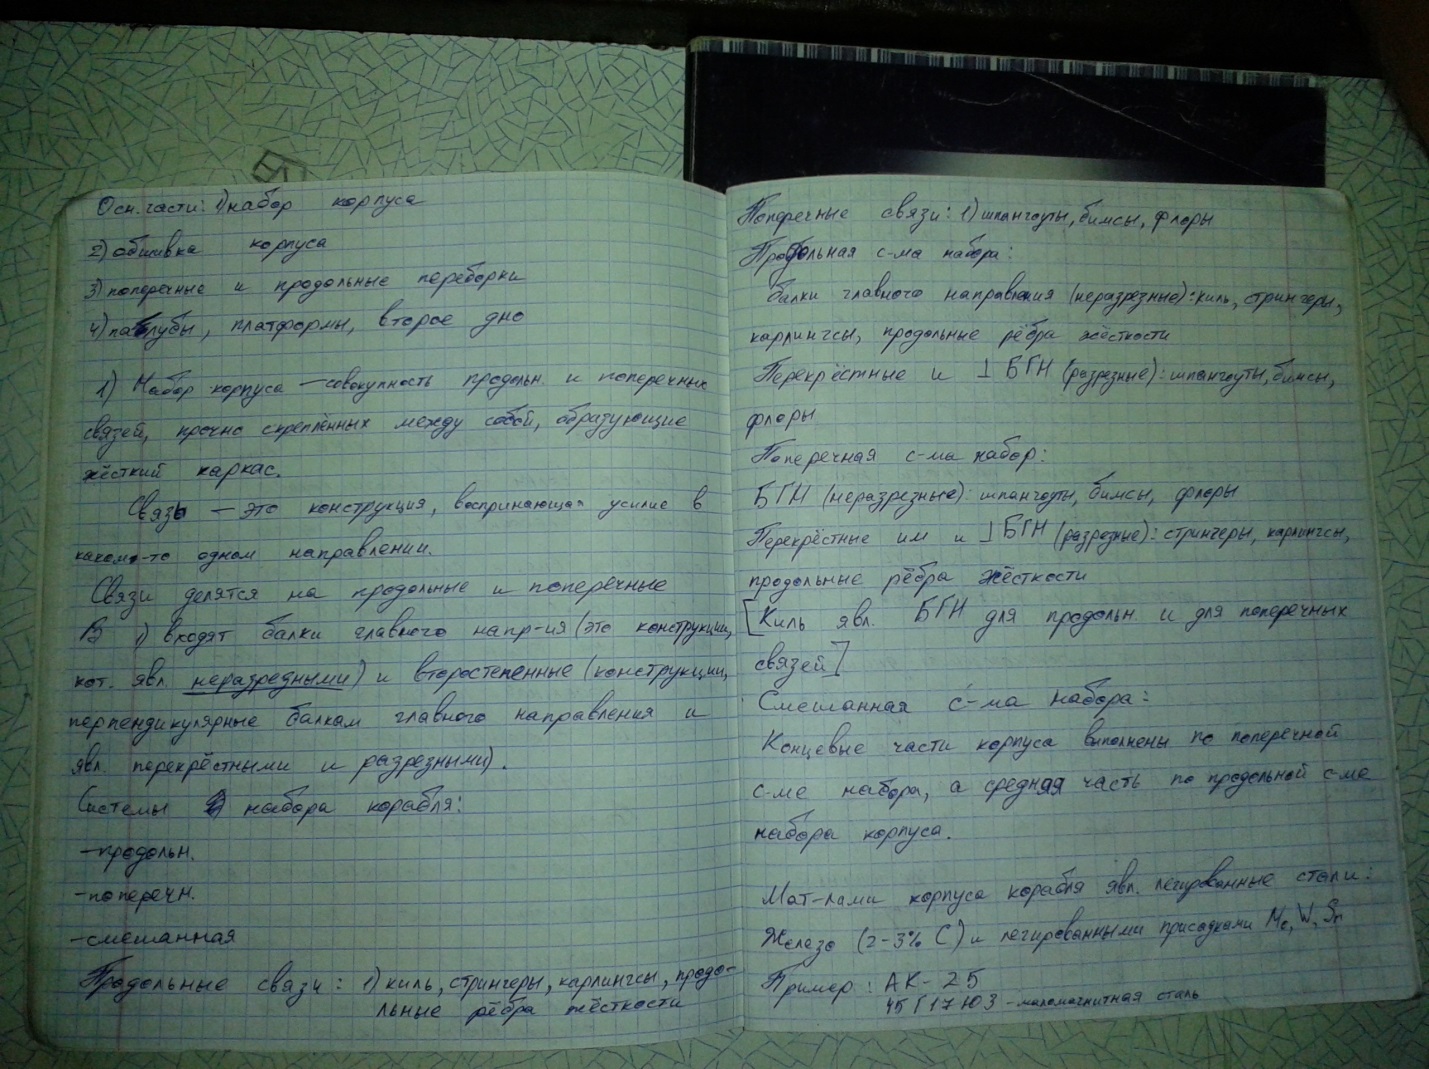 Осн. части: 1) набор корпуса
2) обшивка корпуса
3) поперечные и продольные переборки
4) палубы, платформы, второе дно
1) Набор корпуса – совокупность продольн. и поперечных
связей, прочно скреплённых между собой, образующие
жёсткий каркас.
Связь – это конструкция, воспринающая усилие в
каком-то одном направлении.
Связи делятся на продольные и поперечные
В 1) входят балки главного напр-ия (это конструкции,
кот. явл. неразрезными) и второстепенные (конструкции,
перпендикулярные балкам главного направления и
явл. перекрёстными и разрезными).
Системы набора корабля:
– продольн.
- поперечн.
- смешанная
Продольные связи: 1) киль, стрингеры, карлингсы, продо-
льные рёбра жёсткости
Поперечные связи: 1) шпангоуты, бимсы, флоры
Продольная с-ма набора:
балки главного направления (неразрезные): киль, стрингеры,
карлингсы, продольные рёбра жёсткости
Перекрёстные и ⊥ БГН (разрезные): шпангоуты, бимсы,
флоры
Поперечная с-ма набор:
БГН (неразрезные): шпангоуты, бимсы, флоры
Перекрёстные им и ⊥ БГН (разрезные): стрингеры, карлингсы,
продольные рёбра жёсткости
[Киль явл. БГН для продольн и для поперечных
связей]
Смешанная с-ма набора:
Концевые части корпуса выполнены по поперечной
с-ме набора, а средняя часть по продольной с-ме
набора корпуса.
Мат-лами корпуса корабля явл. легированные стали:
Железо (2-3% С) и легированными присадками W,
Пример: АК-25
45Г17Ю3 – маломагнитная сталь